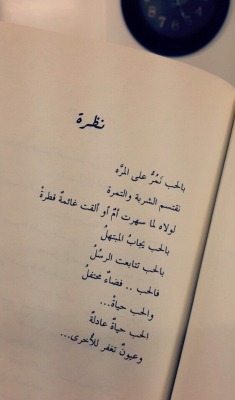 نظرة
بالحب نَمُرُّ على المرَّه
نقتسم الشربة والتمرة
لولاه لما سهرت أمٌ أو ألقت غائمةٌ قطرةْ
بالحب يجابُ المبتهلُ
بالحب تتابعت الرسلُ
فالحب .. فضاءٌ محتفلُ
والحب حياةٌ...
الحب حياةٌ عادلةٌ
وعيونٌ تغفر للأخرى...